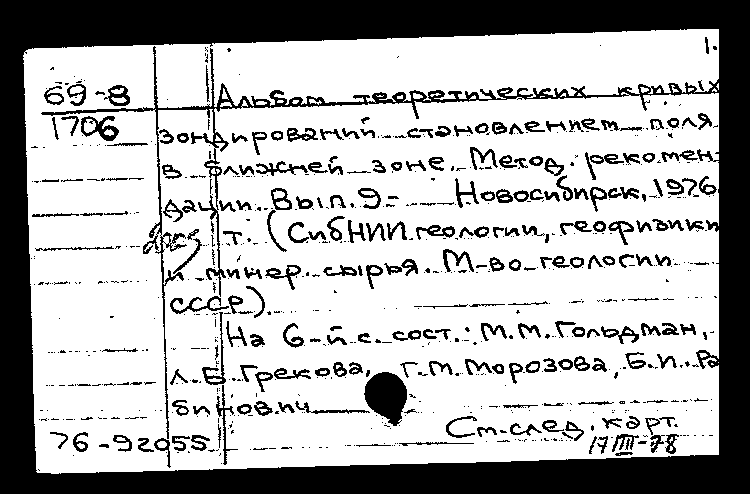 1.
69-8 Альбом теоретических кривых
1706 зондирований становлением поля
в ближней зоне. Метод. рекомен-
дации. Вып. 9- Новосибирск, 1976.
т. (СибНИИ геологии, геофизики
и минер. сырья. М-во геологии
СССР).
На 6-й с. сост.: М.М. Гольдман,
Л.Б. Грекова, Г.М. Морозова, Б.И. Ра
бинович
См. след. карт.
76-92055 17 III-78